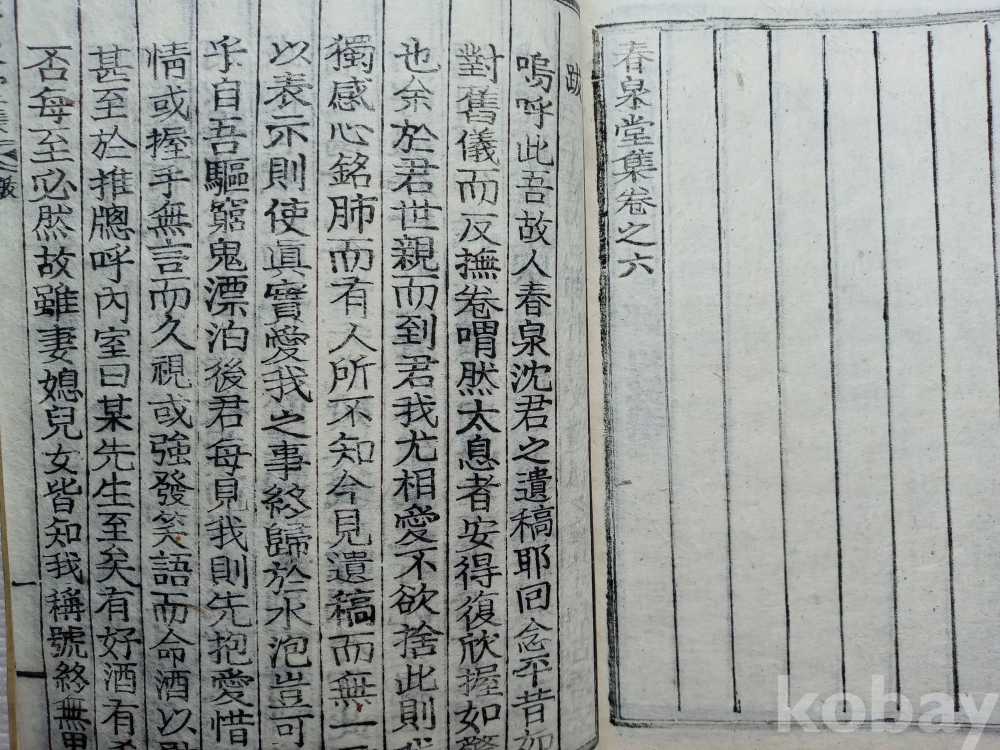 春泉堂集卷之六
跋
嗚呼此吾故人春泉沈君之遺稿耶回念平昔如
對舊儀而反撫卷喟然太息者安得復欣握如
也余於君世親而到君我尤相愛不欲捨此則
獨感心銘肺而有人所不知今見遺稿而無一
以表示則使眞實愛我之事終歸於水泡豈可
乎自吾驅窮鬼漂泊後君每見我則先抱愛惜
情或握手無言而久視或強發笑語而命酒以
甚至於推牕呼內室曰某先生至矣有好酒有
否每至必然故雖妻媳兒女皆知我稱號終無
kobay